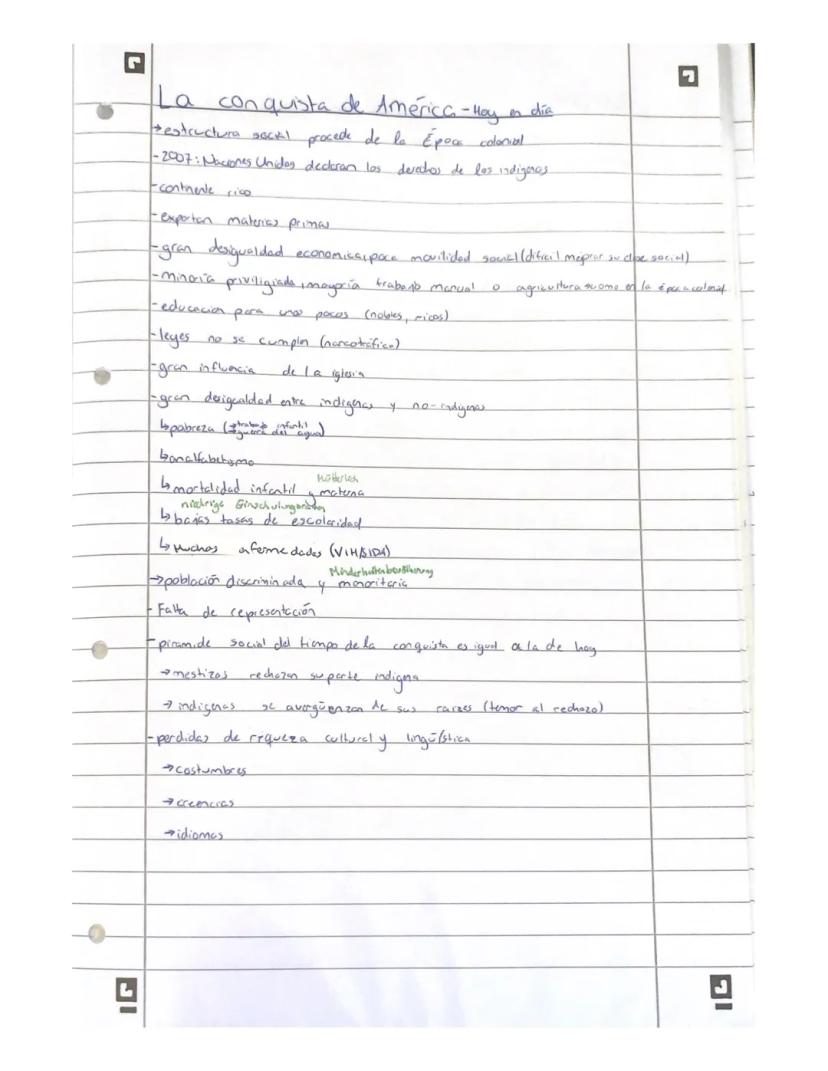 La conquista de América - Hoy en día
→ estructura social procede de la Época colonial
- 2007: Naciones Unidas declaran los derechos de los indígenas
- continente rico
- exportan materias primas
- gran desigualdad economica, poca movilidad social (dificil mejorar su clase social)
- minoría priviligiada, mayoría trabajo manual o agricultura como en la época colonial
- educacion para unos pocos (nobles, ricos)
- leyes no se cumplen (narcotráfico)
- gran influencia de la iglesia
- gran desigualdad entre indigenas y no-indigenas
↳ pobreza (→ trabajo infantil
→ guerra del agua)
↳ analfabetismo
Mütterlich
↳ mortalidad infantil y materna
niedrige Einschulungsraten
↳ bajas tasas de escolaridad
↳ Muchas enfermedades (VIH/SIDA)
Minderheitenbevölkerung
→ población discriminada y minoritaria
- Falta de representación
- piramide social del tiempo de la conquista es igual a la de hoy
→ mestizos rechazan su parte indigena
→ indigenas se avergüenzan de sus raizes (temor al rechazo)
- perdidas de riqueza cultural y lingüística
→ costumbres
→ creencias
→ idiomas